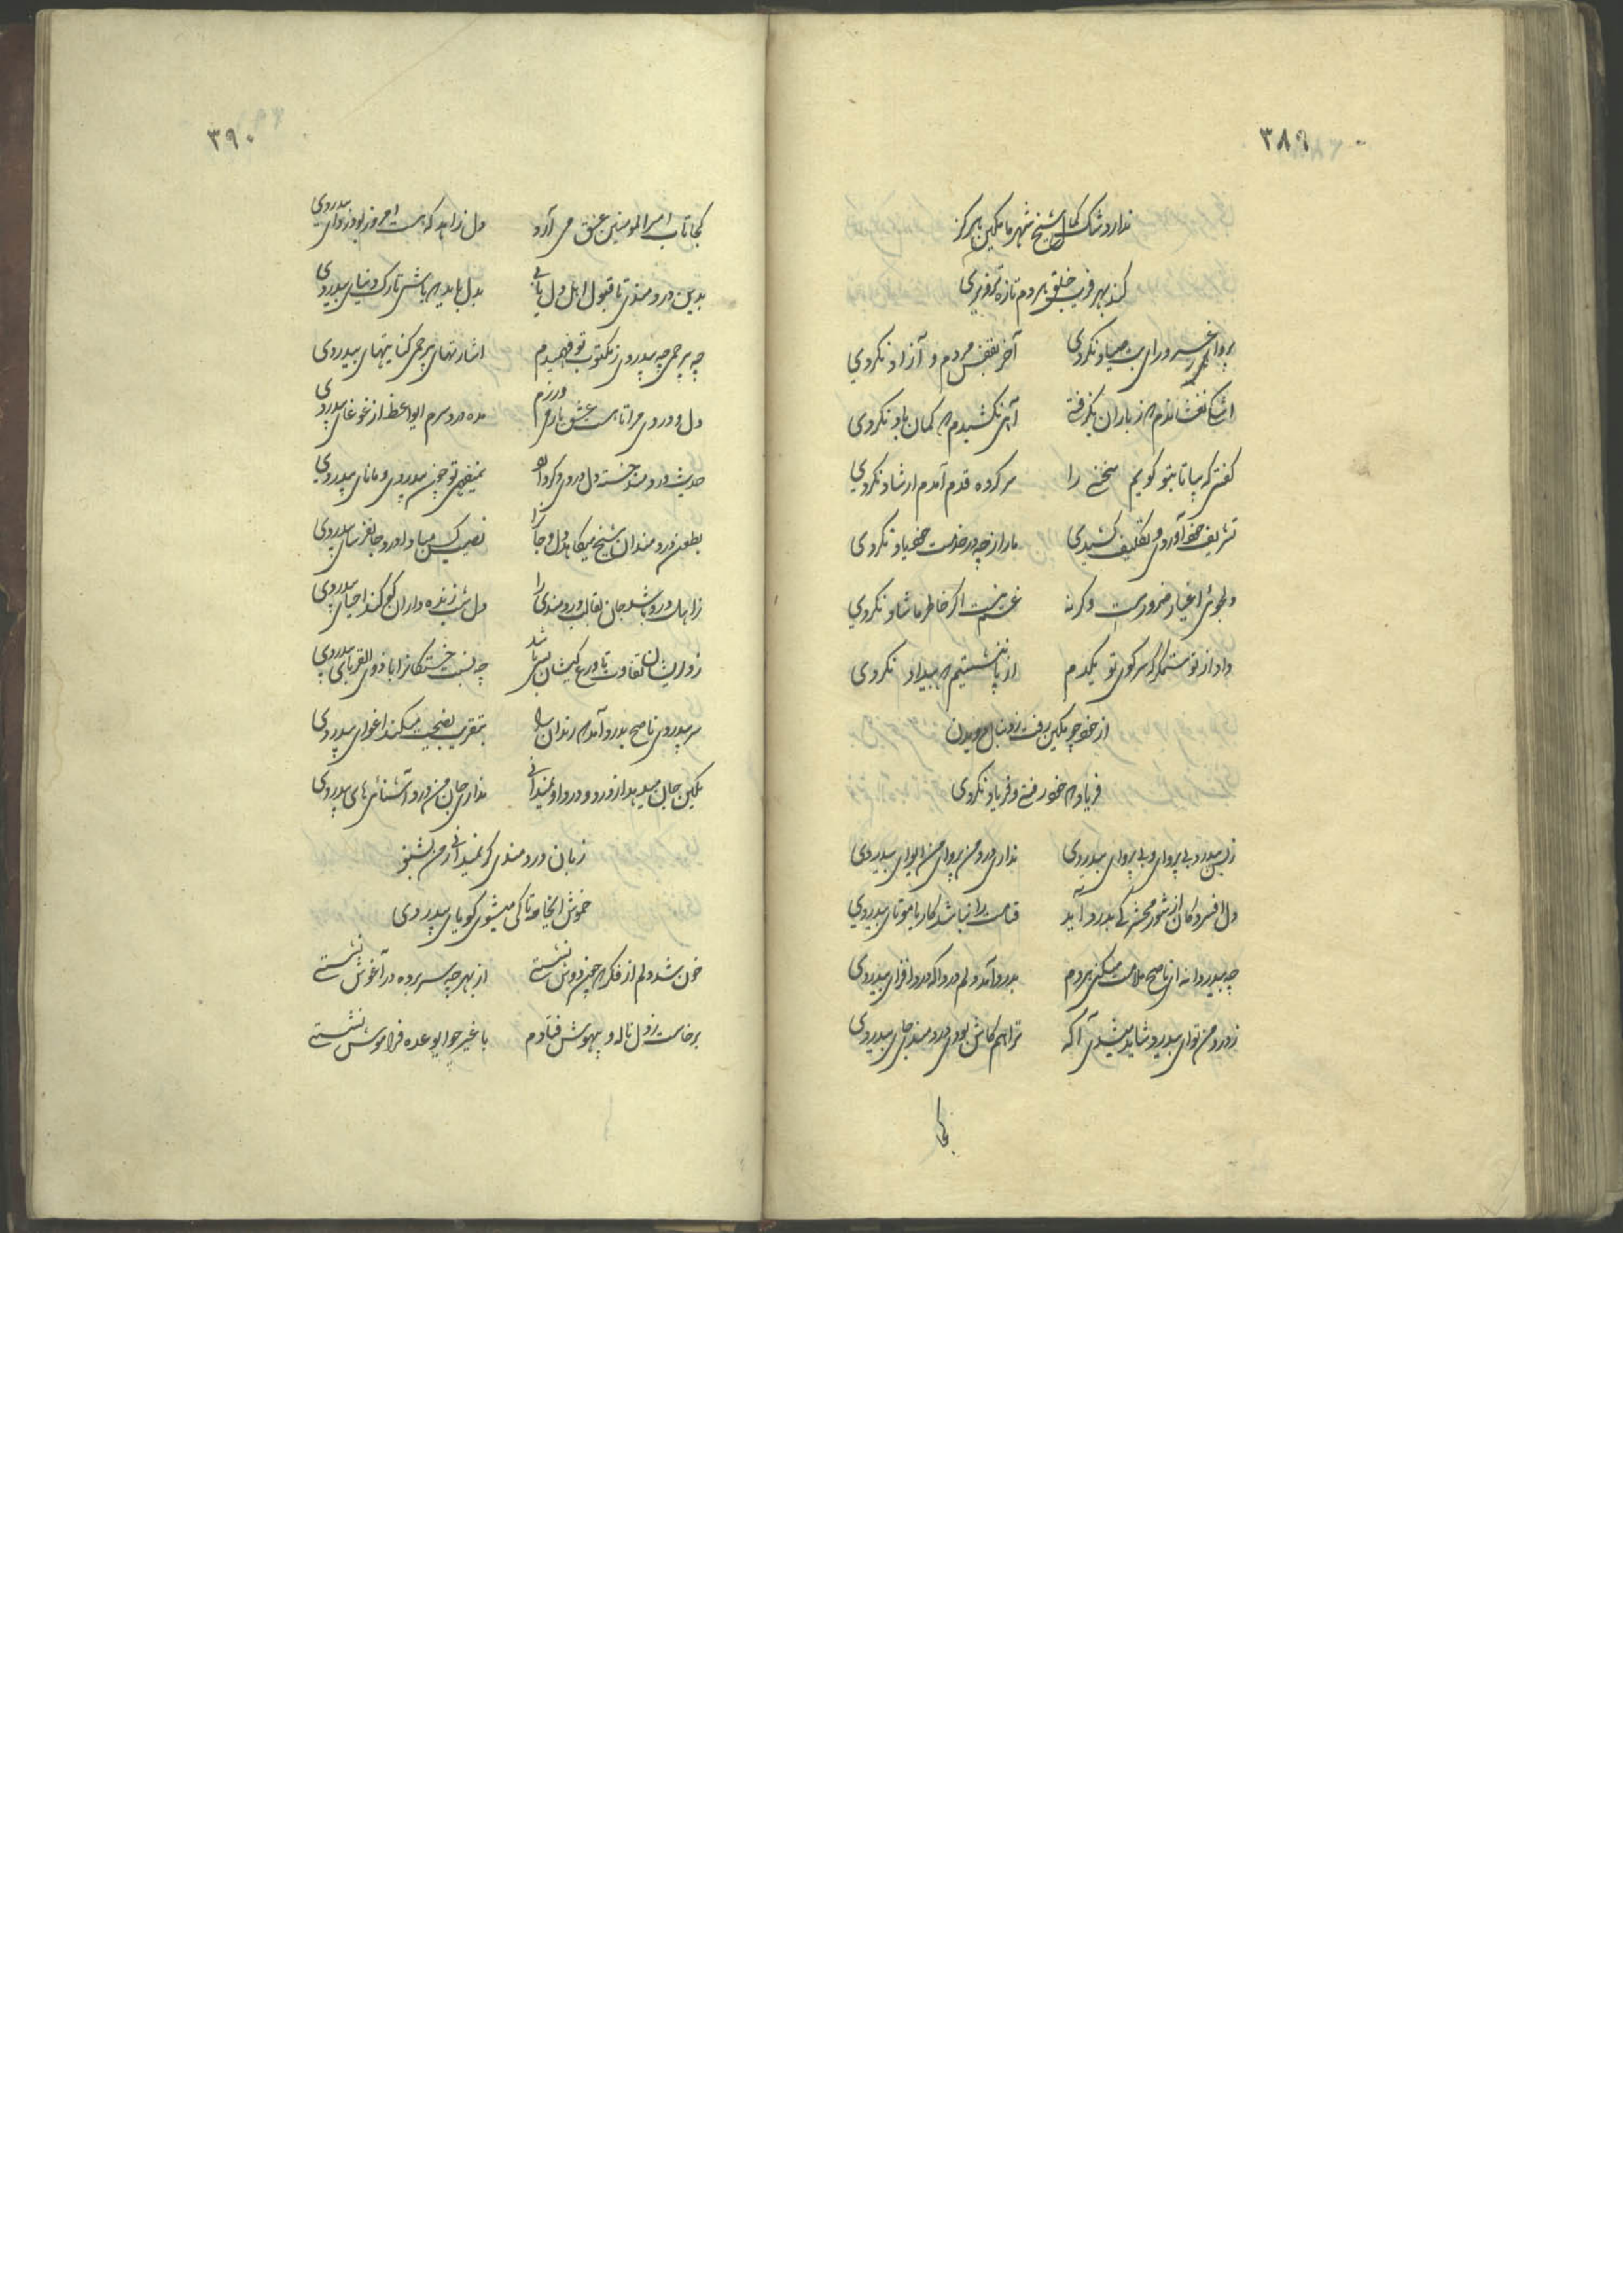 ۳۸۹
ندارد شک کمال شیخ شهر ما مکین هرگز
کند بهر فریب خلق هر دم تازه تزویری
پروا غرور ای بت صیاد نکردی
آخر بقفس مردم و آزاد نکردی
اشکی نفشاندم که ز باران نگرفتی
آهی نکشیدم که گمان باد نکردی
گفتی که بیا تا بتو گویم سخنی را
سر کرده قدم آمدم ارشاد نکردی
تشریف خود آوردی و تکلیف کشیدی
ما را ز چه در خدمت خود یاد نکردی
دلجوئی اغیار ضرورست وگرنه
غم نیست اگر خاطر ما شاد نکردی
داد از تو ستمگر که سر کوی تو یکدم
از پا ننشستیم که بیداد نکردی
از خود چو مکین رفت ز دنبال دویدن
فریاد که خود رفتی و فریاد نکردی
ز بس بیدرد و بی پروای و بی پروای بیدردی
نداری درد من پروای من ای وای بیدردی
دل افسردگان از شور محشر کی بدرد آید
قیامت را نباشد کار با موتای بیدردی
چه بیدردانه ای ناصح ملامت میکنی هردم
بدرد آمد دلم درداکه درد افزای بیدردی
ز درد من تو ای بیدرد شاید میشدی آگه
ترا هم کاش بودی دردمندی جای بیدردی
کجا
۳۹۰
کجا تاب امیر المومنین عشق می آرد
دل زاهد که هست امروز بوذردای بیدردی
بدین دردمندی تا قبول اهل دل یابی
بدل باید که باشی تارک دنیای بیدردی
چه بیرحمی چه بیدردی ز مکتوب تو فهمیدم
اشارتهای بیرحمی کنایتهای بیدردی
دل و دردی مرا تا هست عشق یار می ورزم
مده دردسرم ای واعظ از غوغای بیدردی
حدیث دردمند خسته دل دردی دگر دارد
نمیفهمی تو چون بیدردی و مانای بیدردی
بطعن دردمندان شیخ میکاهد دل و جانرا
نصیب کس مبادا درد جانفرسای بیدردی
ز اهل درد باشد جان بقالب دردمندی را
دل شب زنده داران کی کند احیای بیدردی
چه نسبت خستگانرا با ذوی القربای بیدردی
سر بیدردی ناصح بدرد آمد که رندان را
بتقریب نصیحت میکند اغوای بیدردی
مکین جان میدهد از درد و درد او نمیدانی
نداری جان من درد آشنائی های بیدردی
زبان دردمندی گر نمیدانی ز من بشنو
خموش اینجا که تا کی میشوی گویای بیدردی
خون شد دلم از فکر که چون دوش نشستی
از بهر چه سر برده در آغوش نشستی
برخاست ز دل ناله و بیهوش فتادم
با غیر چو ای وعده فراموش نشستی